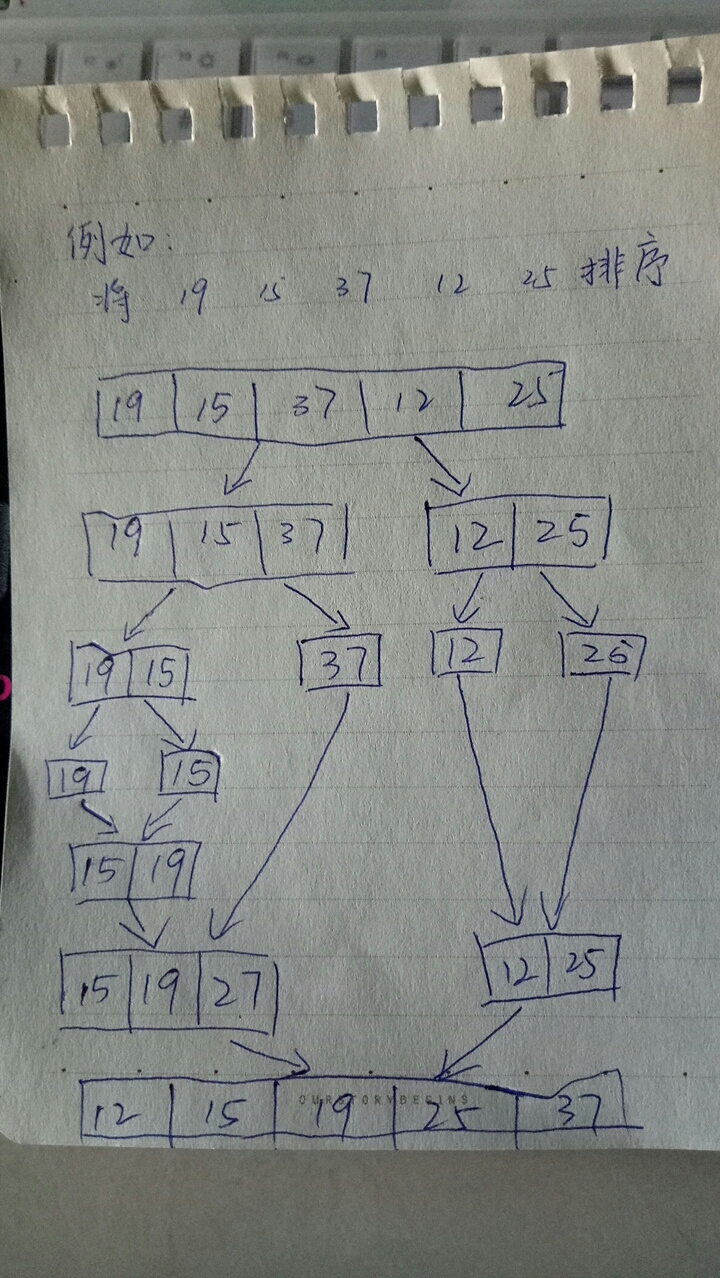 例如:
将 19 15 37 12 25 排序
19 15 37 12 25
19 15 37 12 25
19 15 37 12 26
19 15
15 19
15 19 27 12 25
OURSTORYBEGINS
12 15 19 25 37